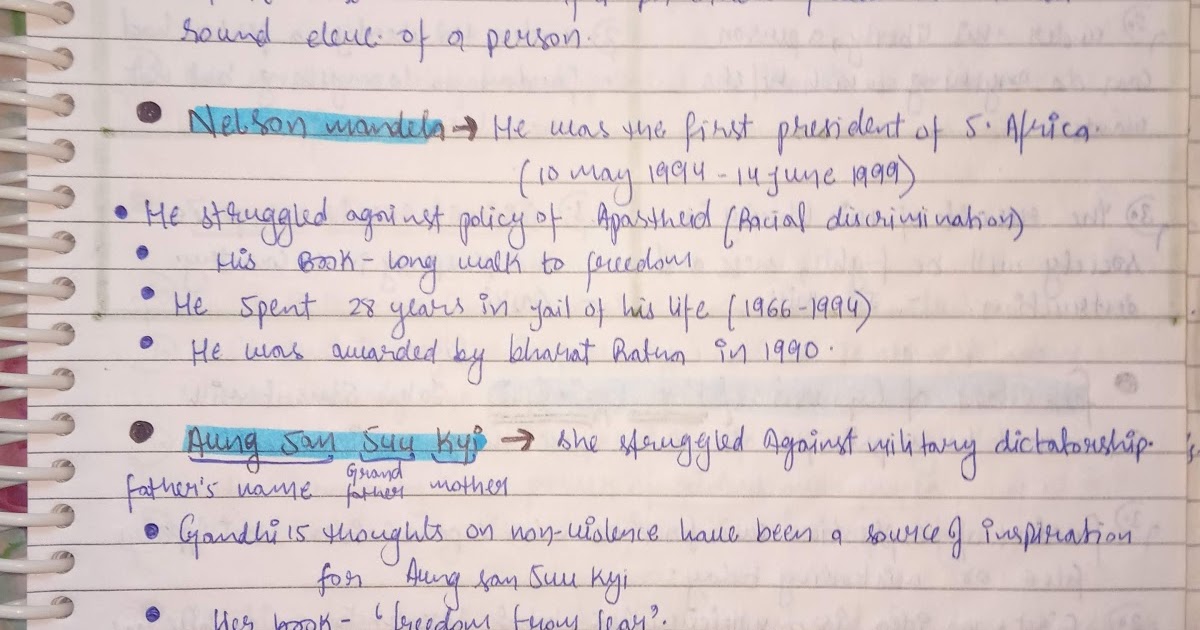 sound deve. of a person.
Nelson mandela → He was the first president of S. Africa.
(10 may 1994 - 14 june 1999)
• He struggled against policy of Apastheid (Racial discrimination)
• His Book - long walk to freedom
• He spent 28 years in jail of his life (1966-1994)
• He was awarded by bharat Ratna in 1990.
Aung San Suu Kyi → she struggled Against military dictatorship.
father's name Grand father mother
• Gandhi's thoughts on non-violence have been a source of inspiration
for Aung san Suu Kyi
• Her book - 'freedom from fear'.